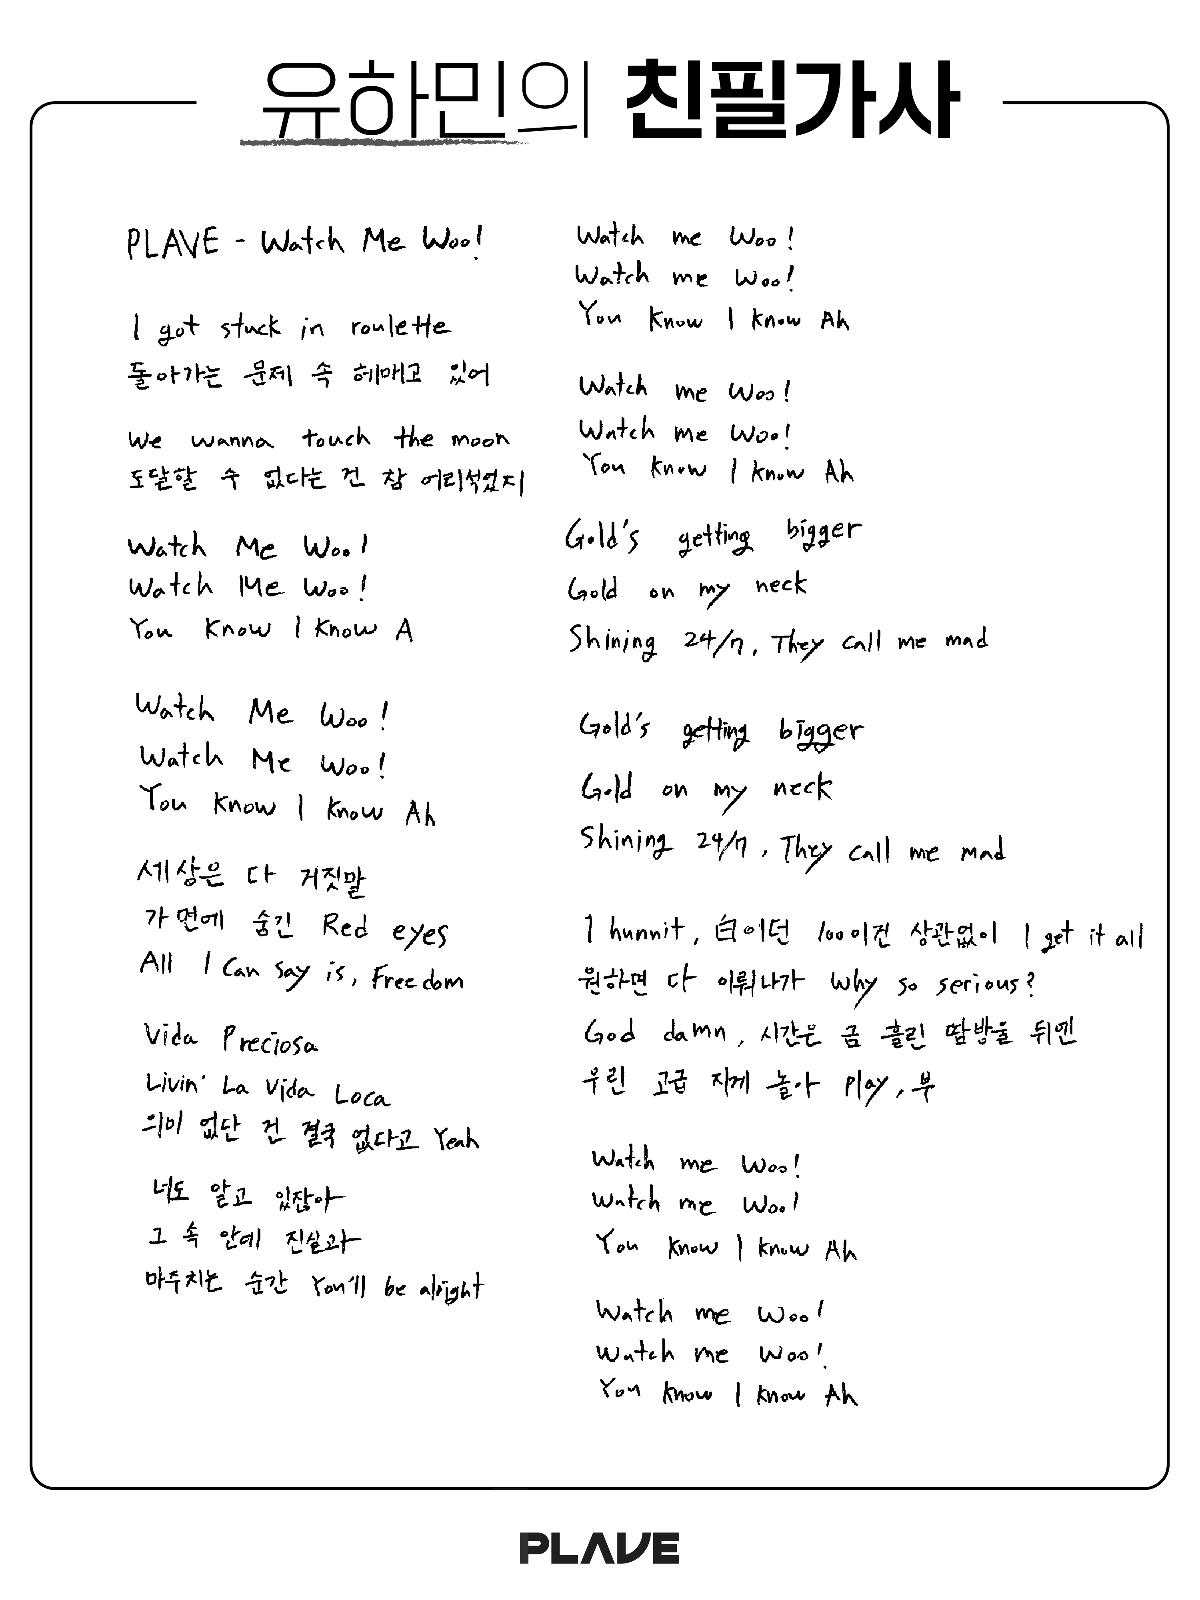 유하민의 친필가사
PLAVE - Watch Me Woo!
I got stuck in roulette
돌아가는 문제 속 헤매고 있어
We wanna touch the moon
도달할 수 없다는 건 참 어리석었지
Watch Me Woo!
Watch Me Woo!
You know I know A
Watch Me Woo!
Watch Me Woo!
You know I know Ah
세상은 다 거짓말
가면에 숨긴 Red eyes
All I Can say is, Freedom
Vida Preciosa
Livin' La Vida Loca
의미 없단 건 결국 없다고 Yeah
너도 알고 있잖아
그 속 안에 진실과
마주치는 순간 You'll be alright
Watch me Woo!
Watch me Woo!
You know I know Ah
Watch me Woo!
Watch me Woo!
You know I know Ah
Gold's getting bigger
Gold on my neck
Shining 24/7, They call me mad
Gold's getting bigger
Gold on my neck
Shining 24/7, They call me mad
1 hunnit, 白이던 100이건 상관없이 I get it all
원하면 다 이뤄나가 Why so serious?
God damn, 시간은 금 흘린 땀방울 뒤엔
우린 고급 지게 놀아 play, 부
Watch me Woo!
Watch me Woo!
You know I know Ah
Watch me Woo!
Watch me Woo!
You know I know Ah
PLAVE